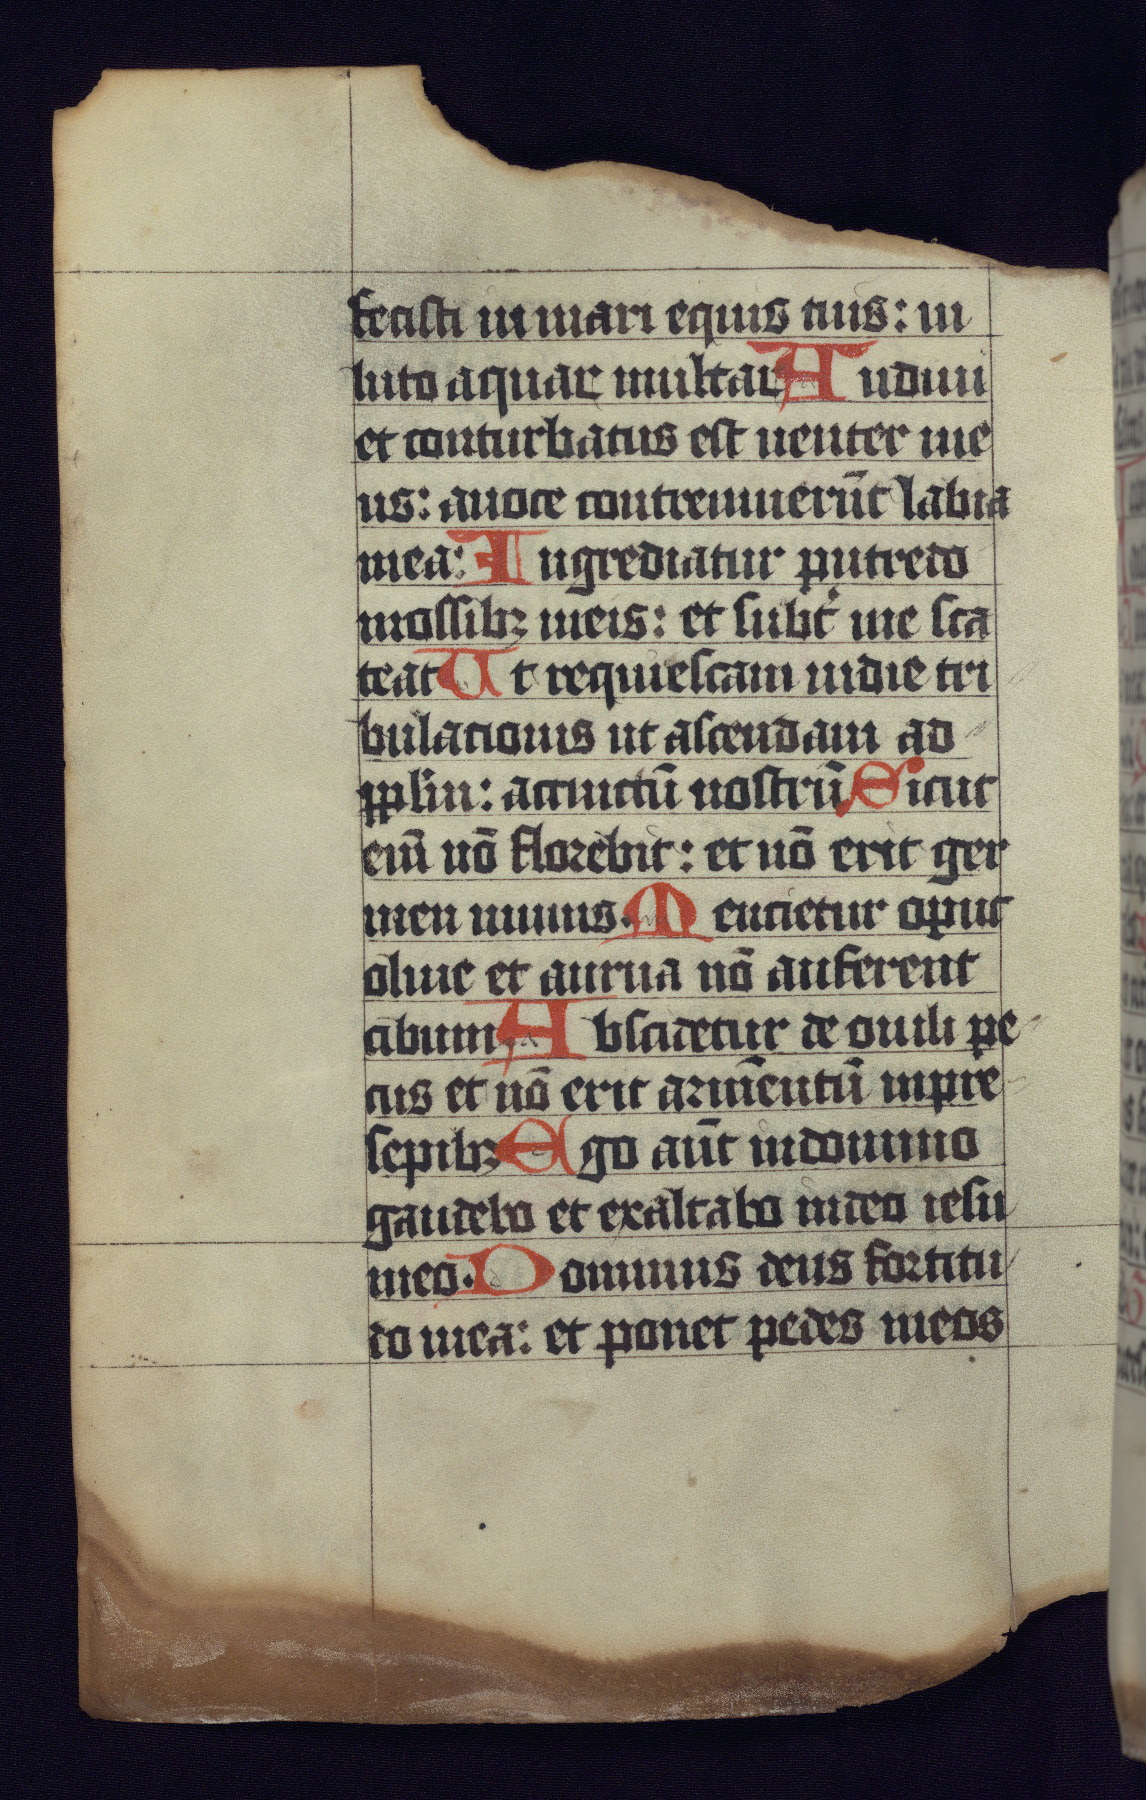 fecisti in mari equis tuis: in
luto aquar multar Audiui
et conturbatus est uenter me
us: auoce contremuerūt labia
mea: Ingrediatur putredo
inossibꝫ meis: et subt̛ me sca
teat Ut requiescam indie tri
bulationis ut ascendam ad
pplm: accinctū nostrū Sicut
eni̅ nō florebit: et nō erit ger
men uinius. Mentietur oput
oliue et aurua nō auferent
cibum Abscidetur de ouili pe
cus et nō erit arm̄entū inpre
sepibꝫ Ego aūt indomino
gaudebo et exaltabo indeo iesu
meo. Dominus deus fortitu
do mea: et ponet pedes meos